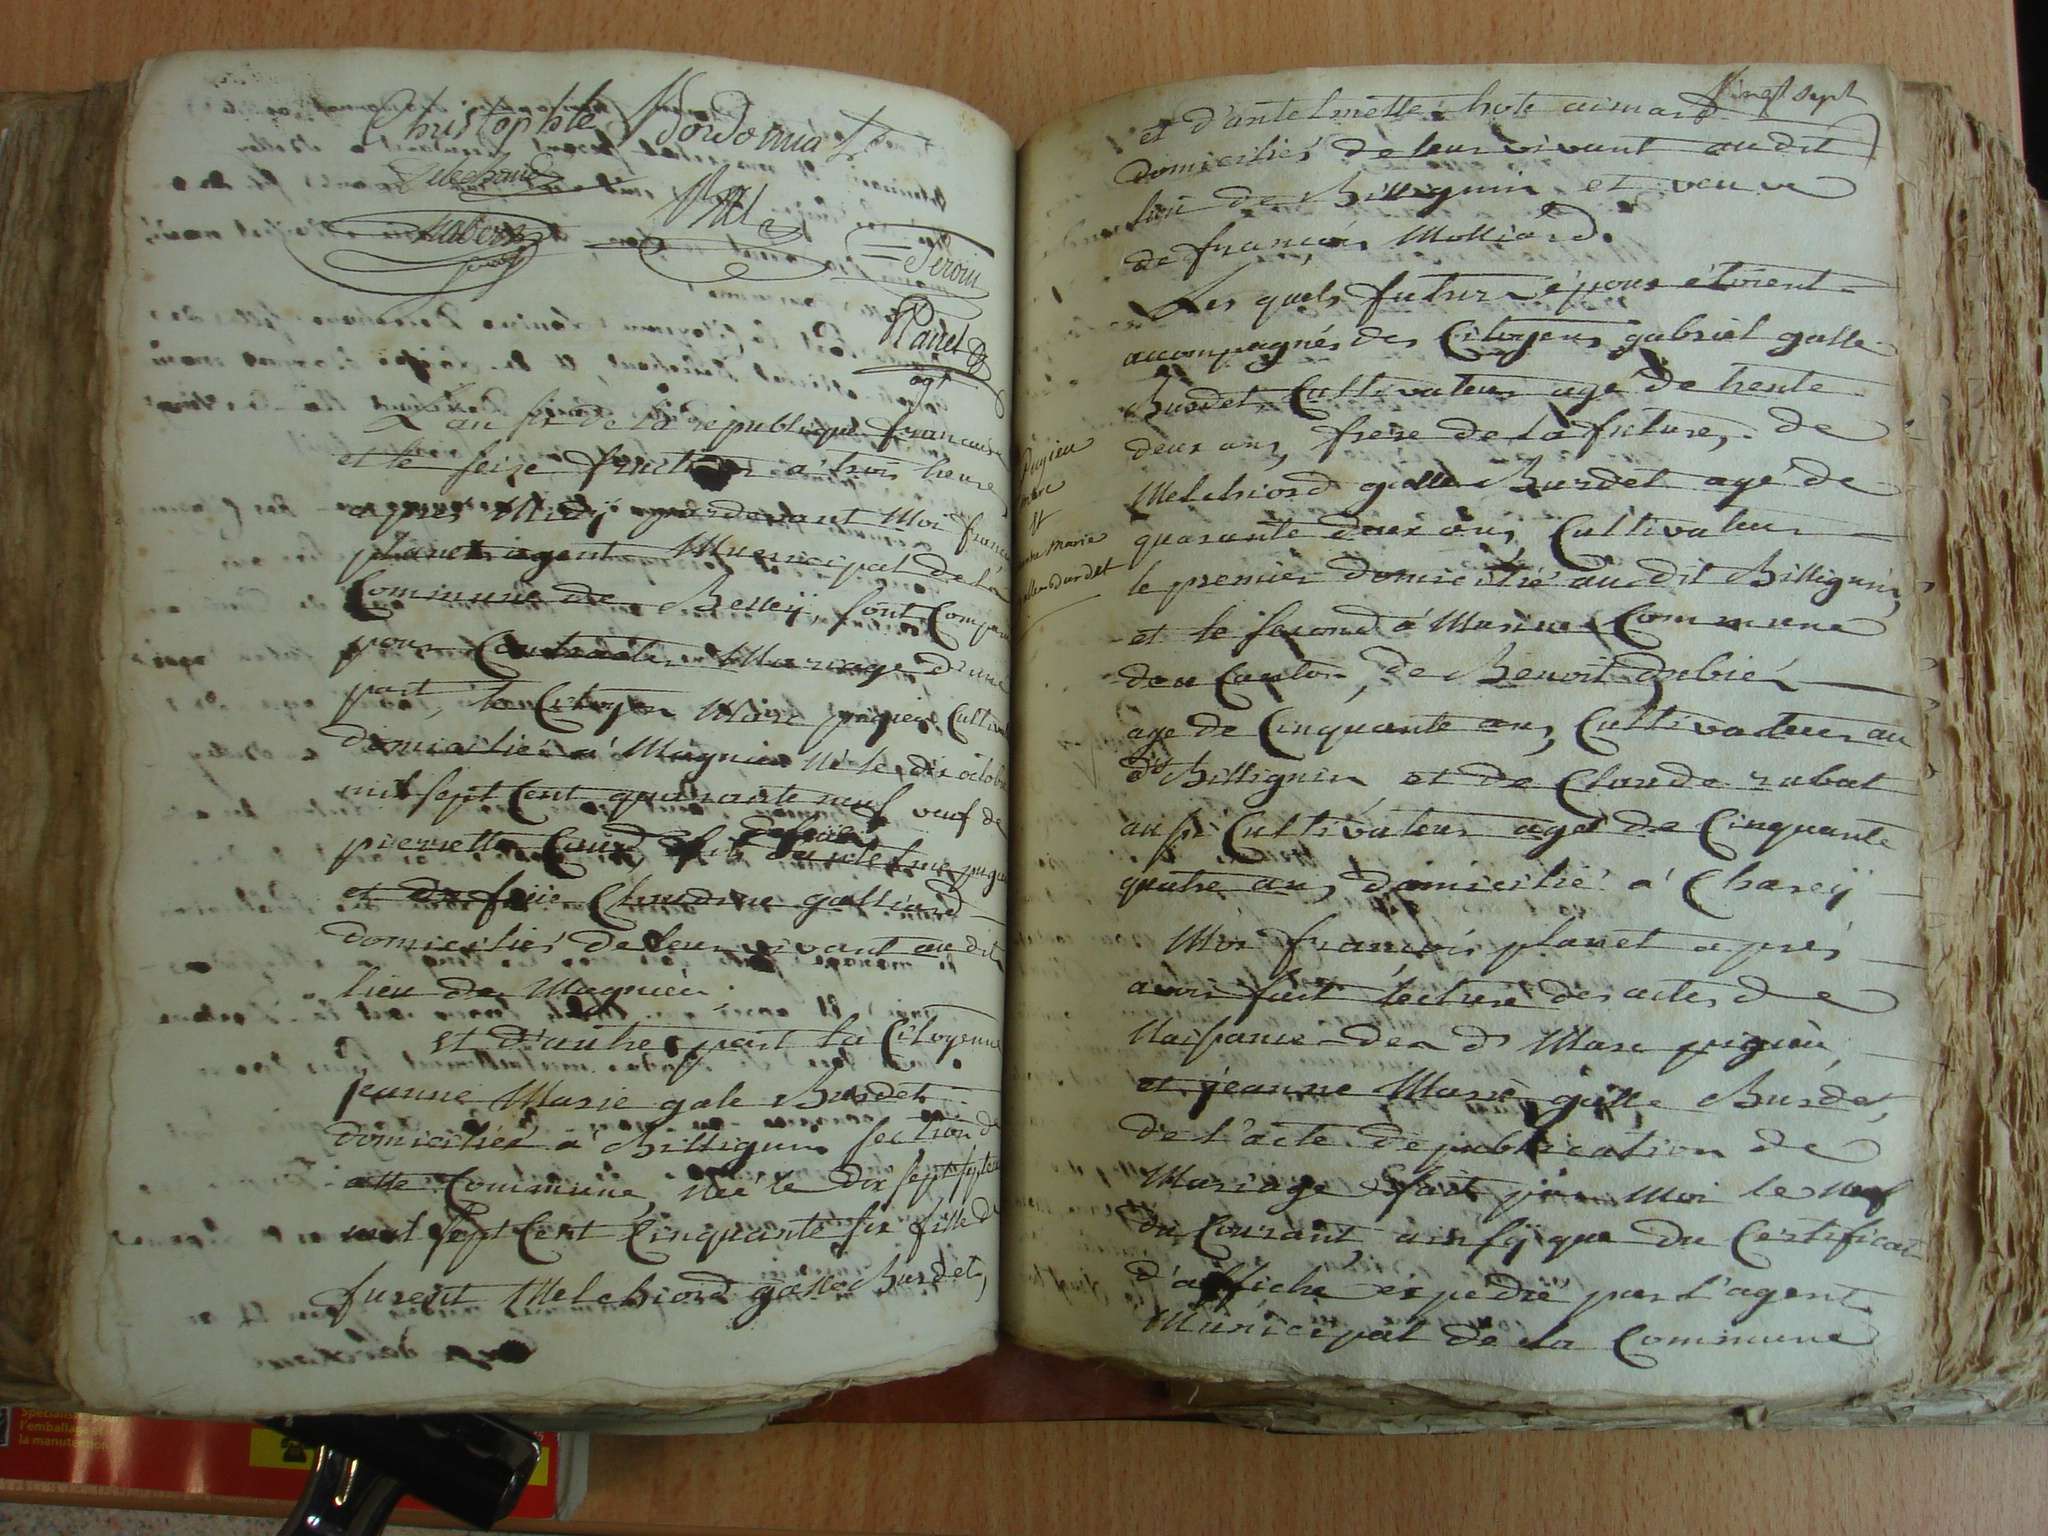 Christophe Bordonnat
Peroin
Planet
agt
L'an six de la republique francaise
et le seize fructidor a trois heures
apres Midÿ pardevant Moi francois
planet agent Municipal de la
Commune de Belleÿ, sont Comparu
pour Contracter Mariage d'une
part, le Citoyen Marc pugieu Cultivat
domicilié a Magnieu Né le dix octobre
mil sept Cent quarante neuf veuf de
pierrette fils d'antelme pugieu
et de feüe Claudine galliard
domiciliés de leur vivant au dit
lieu de Magnieu
et d'autre part la Citoyenne
jeanne Marie gale Burdet
domiciliée a Billignin section de
cette Commune, Née le dix sept septem
mil sept Cent Cinquante six fille de
furent Melchiord galle Burdet,
vingt sept
et d'antelmette hote aimard
domiciliés de leur vivant au dit
lieu de Billignin et veuve
de françois Molliard.
Les quels futurs époux étoient
accompagnés des Citoyens gabriel galle
Burdet Cultivateur agé de trente
deux ans, frere de la future, de
Melchiord galle Burdet agé de
quarante deux ans Cultivateur
le premier domicilié au dit Billignin,
et le second á Musin Commune
de ce Canton, de Benoit dubié
age de Cinquante ans Cultivateur au
dt Billignin et de Claude rabat
aussi Cultivateur agé de Cinquante
quatre ans domicilié a Chareÿ
Moi françois planet aprés
avoir fait lecture des actes de
Naissance des ds Marc pugieu,
et jeanne Marie galle Burdet,
de l'acte de publication de
Mariage fait par Moi le neuf
du Courant ainsÿ que du Certificat
d'affiche éxpedié par l'agent
Municipal de la Commune
pugieu
marc
et
jeanne Marie
galle Burdet
Spécialiste
l'emballage et
la manutention